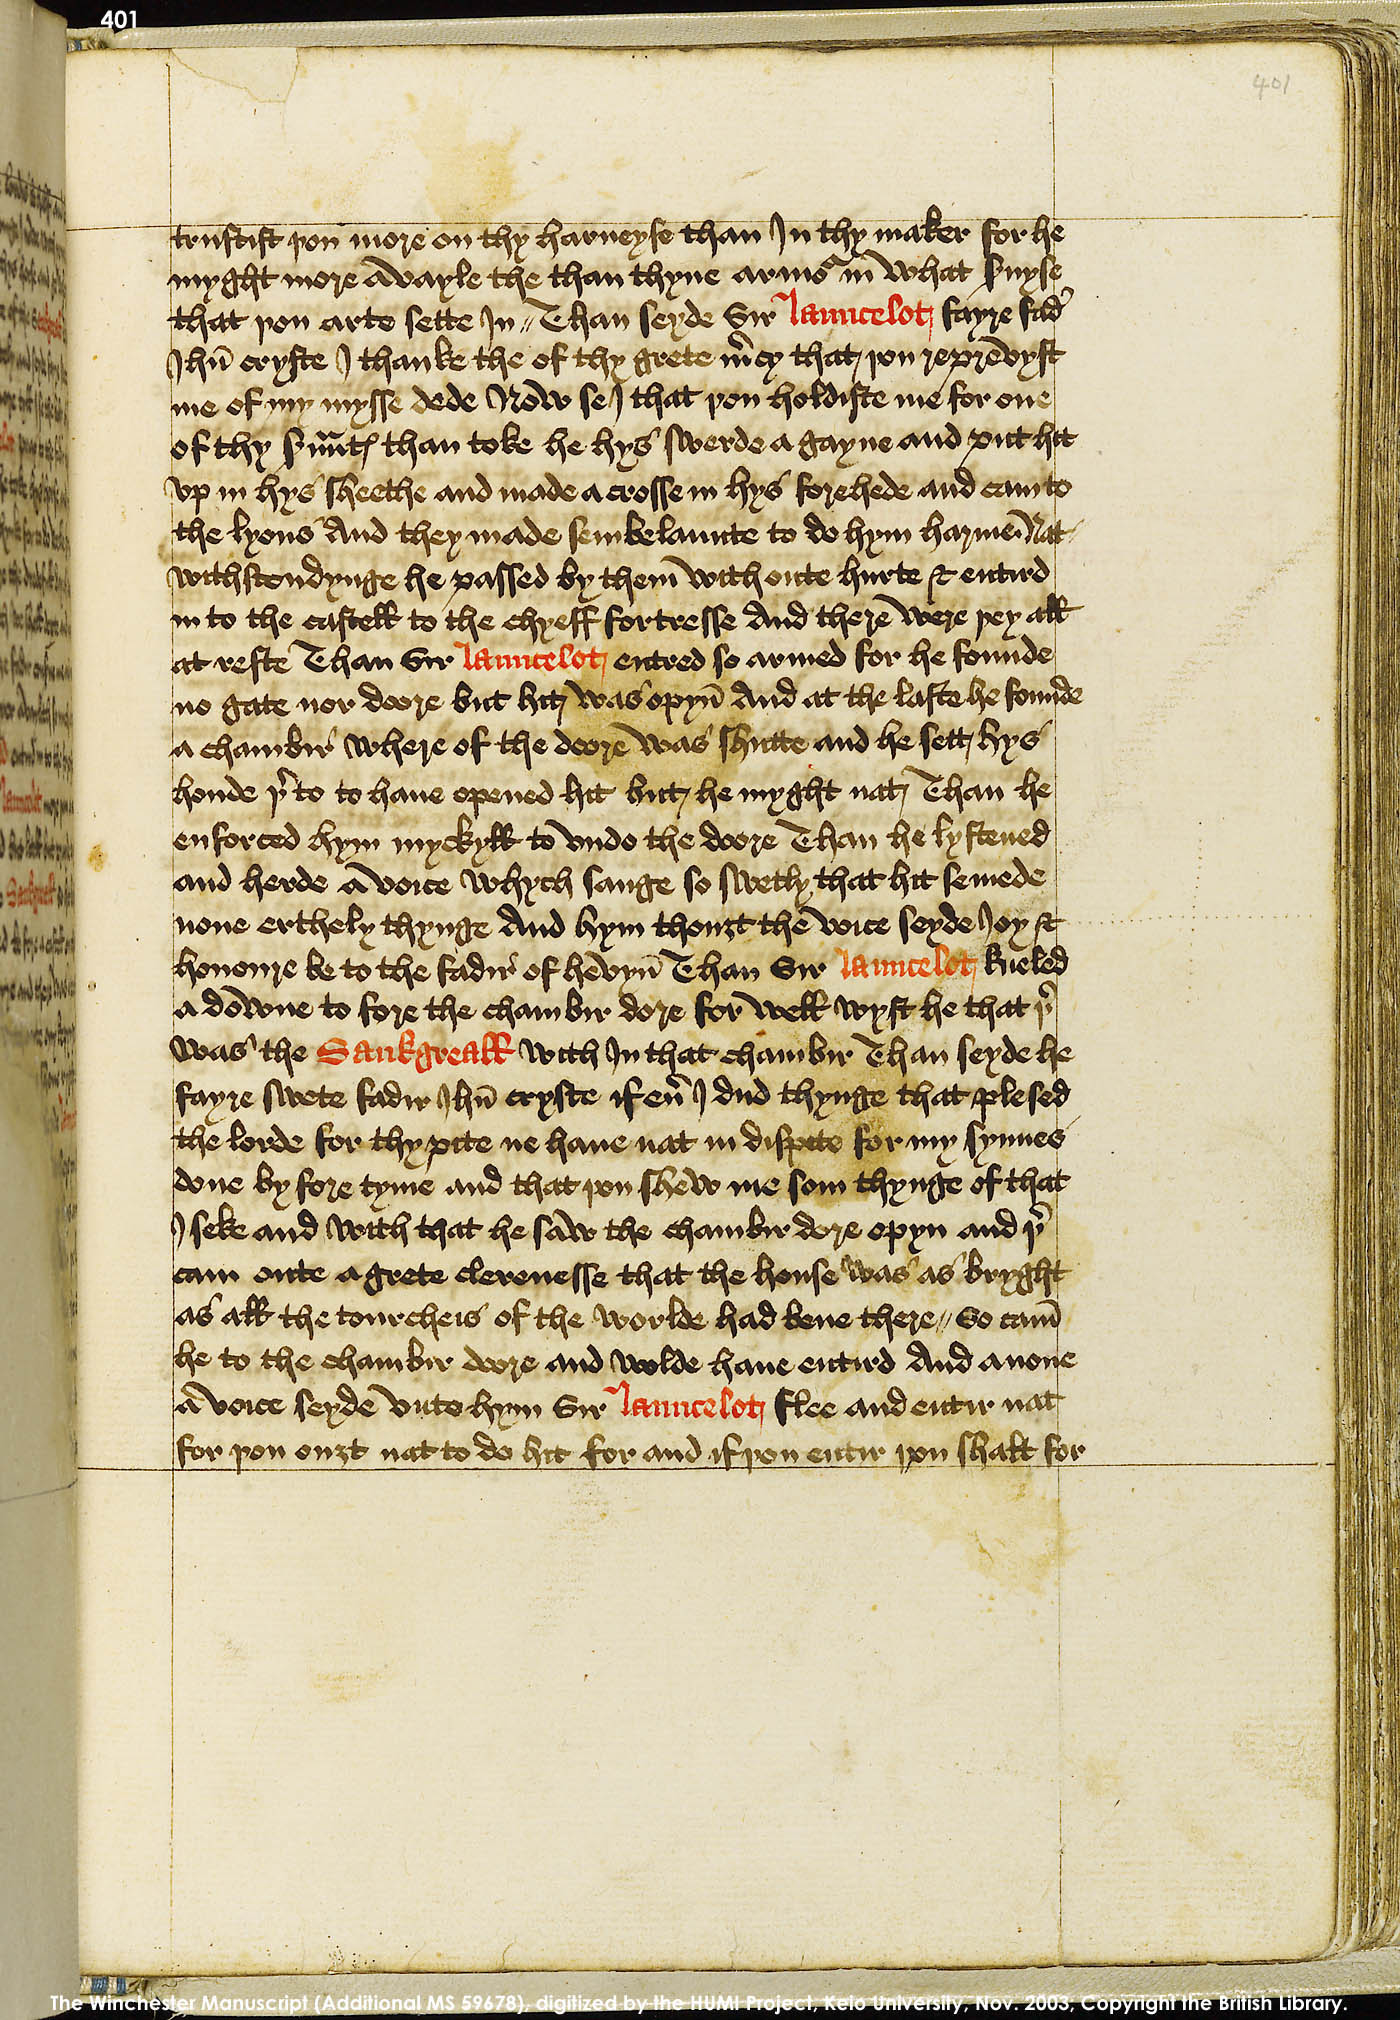 401
401
trustist þou more on thy harneyse than In thy maker for he
myght more avayle the than thyne armoʳ in what ẜuyse
that þou arte sette In // Than seyde Sir launcelot fayre fad̉
Ihū cryste I thanke the of thy grete m̉cy that þou reprevyst
me of my mysse dede Now se I that þou holdiste me for one
of thy ẜuaūt than toke he hys swerde a gayne and put hit
vp in hys sheethe and made a crosse in hys forehede and cam to
the lyons And they made sembelaunte to do hym harme Nat
withstondynge he passed by them with oute hurte & entird
in to the castell to the chyeff fortresse And there were þey all
at reste Than Sir launcelot entred so armed for he founde
no gate nor doore but hit was opyn̄ And at the laste he founde
a chambir where of the doore was shutte and he sett hys
honde þ̉to to haue opened hit but he myght nat Than he
enforced hym myckyll to vndo the doore Than he lystened
and herde a voice whych sange so swetly that hit semede
none erthely thynge And hym thouzt the voice seyde Joy &
honoure be to the fadir of hevyn̄ Than Sir launcelot kneled
a downe to fore the chambir dore for well wyst he that þ̉
was the Sankgreall with In that chambir Than seyde he
fayre swete fadir Ihū cryste if eủ I dud thynge that plesed
the lorde for thy pite ne haue nat in dispite for my synnes
done by fore tyme and that þou shew me som thynge of that
I seke and with that he saw the chambir dore opyn and þ̉
cam oute a grete clerenesse that the house was as bryght
as all the tourcheis of the worlde had bene there // So cam̄
he to the chambir doore and wolde haue entird And anone
a voice seyde vnto hym Sir launcelot flee and entir nat
for þou ouzt nat to do hit for and if þou entir þou shalt for
The Winchester Manuscript (Additional MS 59678), digitized by the HUMI Project, Keio University, Nov. 2003, Copyright the British Library.